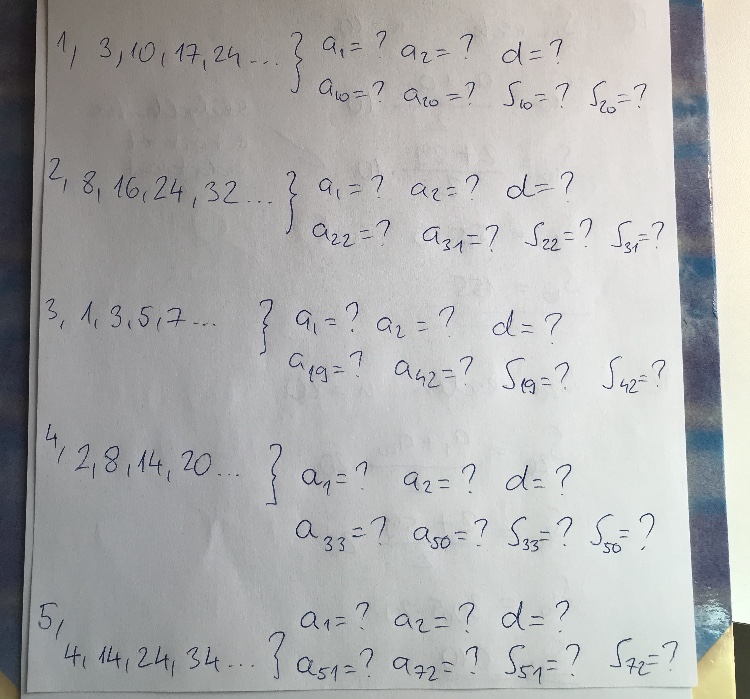 1, 3, 10, 17, 24... } a₁=? a₂=? d=?
a₁₀=? a₂₀=? S₁₀=? S₂₀=?
2, 8, 16, 24, 32... } a₁=? a₂=? d=?
a₂₂=? a₃₁=? S₂₂=? S₃₁=?
3, 1, 3, 5, 7... } a₁=? a₂=? d=?
a₁₉=? a₄₂=? S₁₉=? S₄₂=?
4, 2, 8, 14, 20... } a₁=? a₂=? d=?
a₃₃=? a₅₀=? S₃₃=? S₅₀=?
5, a₁=? a₂=? d=?
4, 14, 24, 34... } a₅₁=? a₇₂=? S₅₁=? S₇₂=?